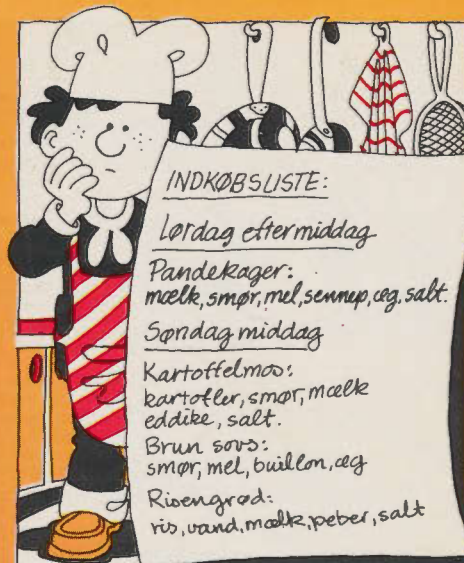 INDKØBSLISTE:
Lørdag eftermiddag
Pandekager:
mælk, smør, mel, sennep, æg, salt.
Søndag middag
Kartoffelmos:
kartofler, smør, mælk
eddike, salt.
Brun sovs:
smør, mel, buillon, æg
Risengrød:
ris, vand, mælk, peber, salt